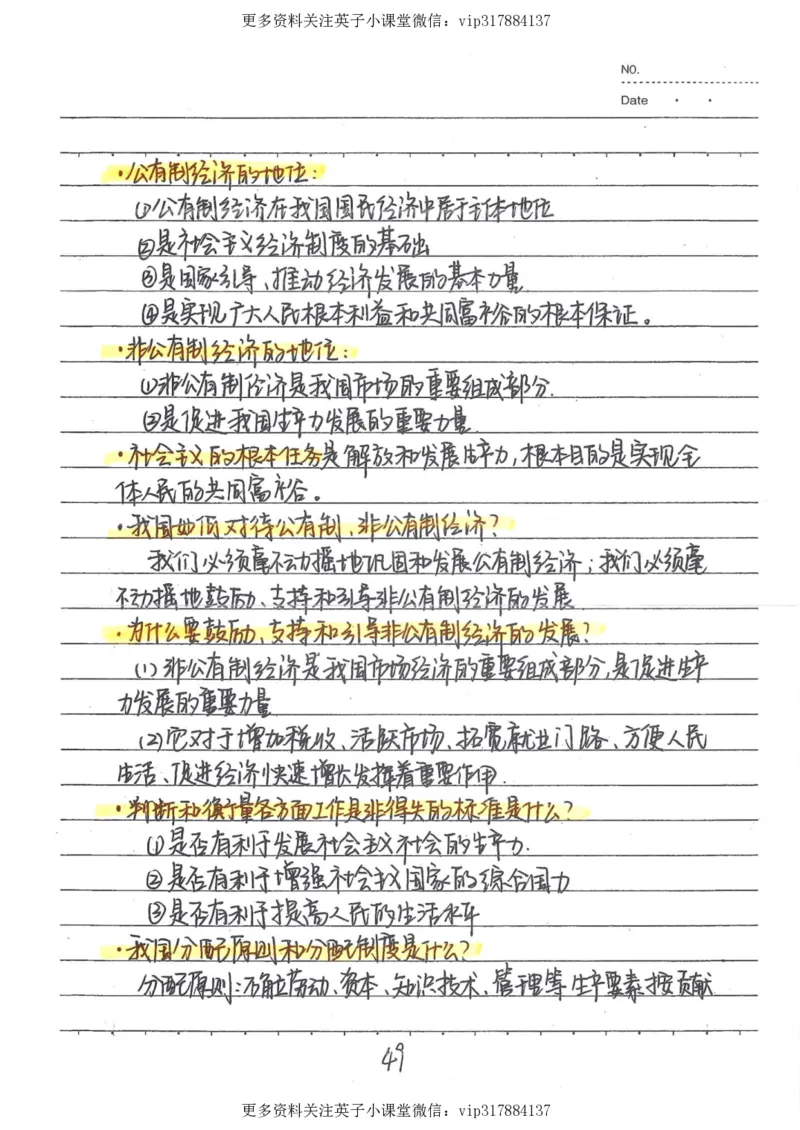 更多资料关注英子小课堂微信：vip317884137
NO.
Date
·公有制经济的地位：
①公有制经济在我国国民经济中居于主体地位
②是社会主义经济制度的基础
③是国家引导、推动经济发展的基本力量
④是实现广大人民根本利益和共同富裕的根本保证。
·非公有制经济的地位：
①非公有制经济是我国市场的重要组成部分.
②是促进我国生产力发展的重要力量
·社会主义的根本任务是解放和发展生产力，根本目的是实现全
体人民的共同富裕。
·我国如何对待公有制、非公有制经济？
我们必须毫不动摇地巩固和发展公有制经济；我们必须毫
不动摇地鼓励、支持和引导非公有制经济的发展
·为什么要鼓励、支持和引导非公有制经济的发展？
(1)非公有制经济是我国市场经济的重要组成部分，是促进生产
力发展的重要力量
(2)它对于增加税收、活跃市场、拓宽就业门路、方便人民
生活、促进经济快速增长发挥着重要作用.
·判断和衡量各方面工作是非得失的标准是什么？
①是否有利于发展社会主义社会的生产力.
②是否有利于增强社会主义国家的综合国力
③是否有利于提高人民的生活水平
·我国分配原则和分配制度是什么？
分配原则：确立劳动、资本、知识技术、管理等生产要素按贡献
49
更多资料关注英子小课堂微信：vip317884137